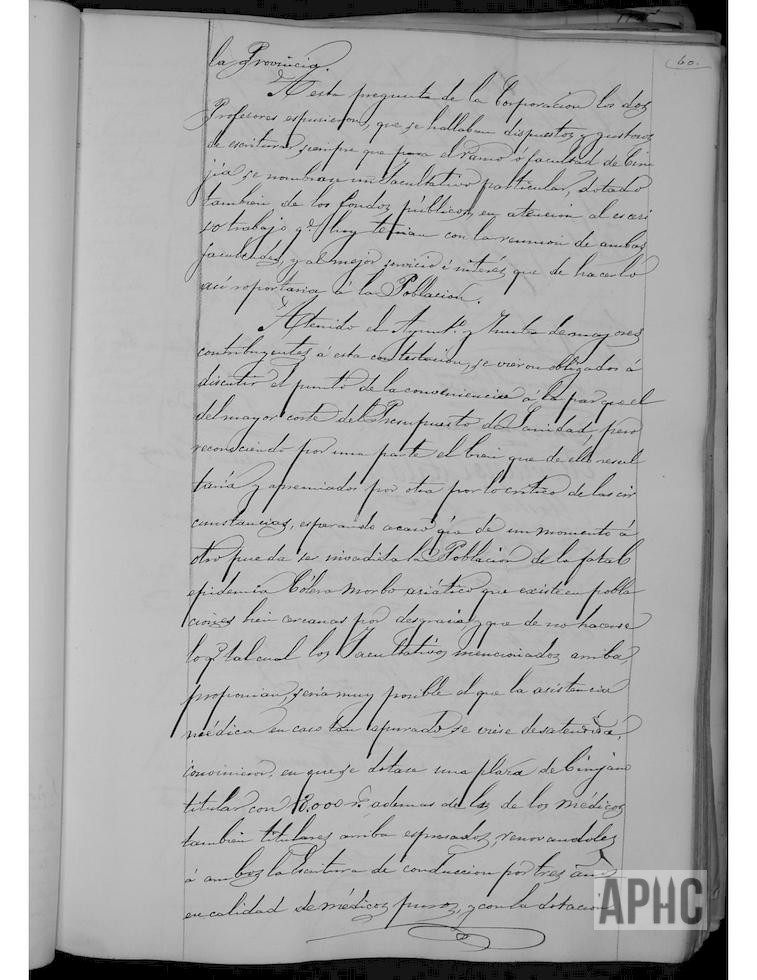 60.
la Provincia.
A esta pregunta de la Corporacion los dos
Profesores espusieron, que se hallaban dispuestos y gustosos
de escriturar, siempre que para el ramo ó facultad de Ciru
jía, se nombrase un Facultativo particular, dotado
tambien de los fondos públicos, en atencion al escesi
vo trabajo q.e hoy tenian con la reunion de ambas
facultades, y al mejor servicio é interés que de hacerlo
así reportaria á la Poblacion.
Atenido el Ayunt.o y Junta de mayores
contribuyentes á esta contestacion, se vieron obligados á
discutir el punto de la conveniencia á la par que el
del mayor coste del Presupuesto de Sanidad, pero
reconociendo por una parte el bien que de ello resul
taría y apremiados por otra por lo critico de las cir
cunstancias, esperando acaso que de un momento á
otro pueda ser invadida la Poblacion de la fatal
epidemia Cólera morbo asiático que existe en pobla
ciones bien cercanas por desgracia, y que de no hacerse
lo q.e tal cual los Facultativos mencionados arriba,
proponian, seria muy posible el que la asistencia
médica en caso tan apurado, se viese desatendida,
convinieron en que se dotase una plaza de Cirujano
titular con 8.000 r.s ademas de las de los médicos
tambien titulares arriba espresados, renovandoles
á ambos la Escritura de conduccion por tres años
en calidad de médicos puros, y con la dotacion
APHC